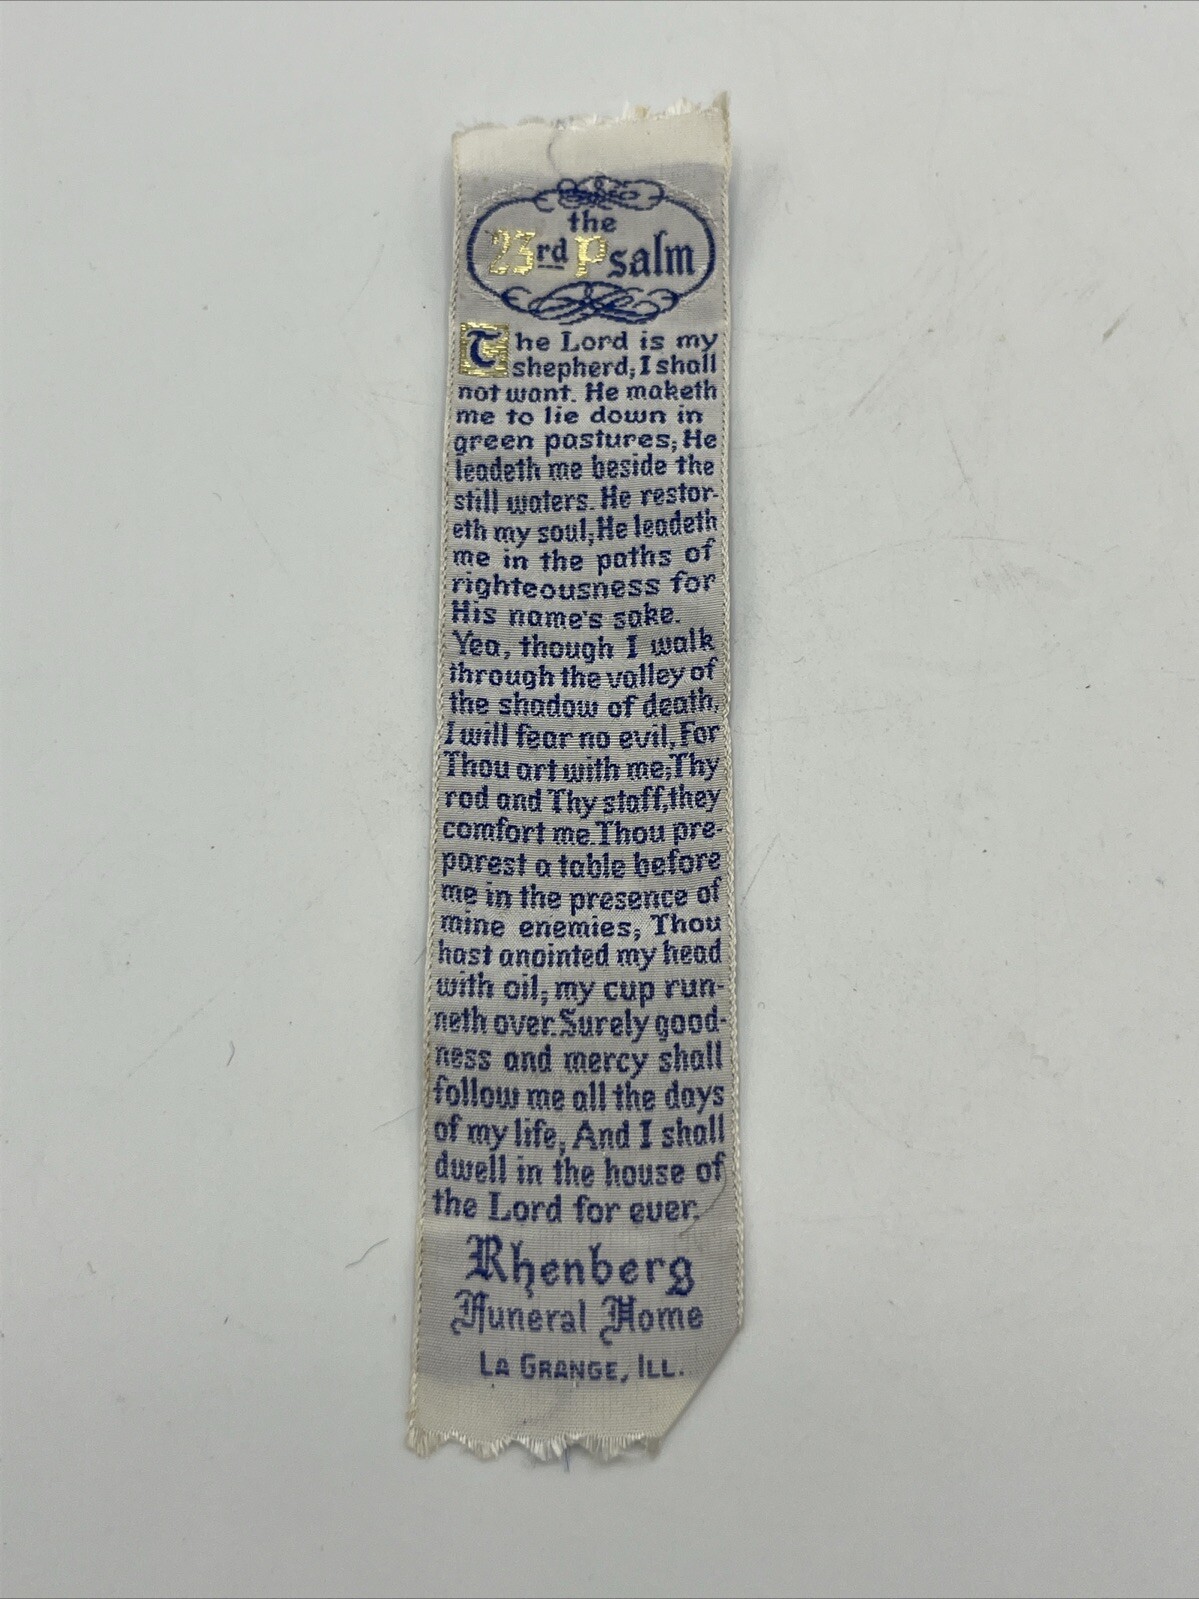 the
23rd Psalm
The Lord is my
shepherd; I shall
not want. He maketh
me to lie down in
green pastures; He
leadeth me beside the
still waters. He restor-
eth my soul; He leadeth
me in the paths of
righteousness for
His name's sake.
Yea, though I walk
through the valley of
the shadow of death,
I will fear no evil, For
Thou art with me; Thy
rod and Thy staff, they
comfort me. Thou pre-
parest a table before
me in the presence of
mine enemies; Thou
hast anointed my head
with oil; my cup run-
neth over. Surely good-
ness and mercy shall
follow me all the days
of my life; And I shall
dwell in the house of
the Lord for ever.
Rhenberg
Funeral Home
LA GRANGE, ILL.